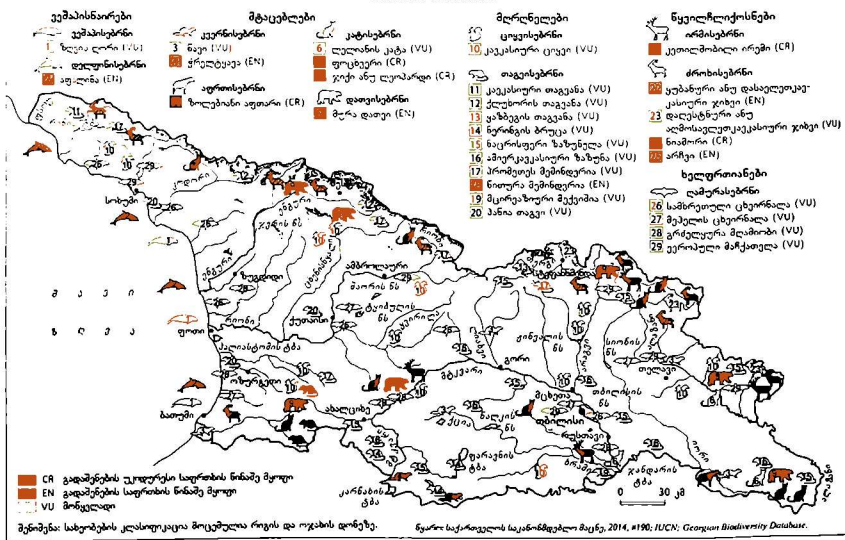 ვეშაპისნაირები
ვეშაპისებრნი
1 ზღვის ღორი (VU)
დელფინისებრნი
აფალინა (EN)
მტაცებლები
კვერნისებრნი
3 წავი (VU)
ჭრელტყავა (VU)
აფთრისებრნი
ზოლებიანი აფთარი (CR)
კატისებრნი
6 ლელიანის კატა (VU)
ფოცხვერი (CR)
ჯიქი ანუ ლეოპარდი (CR)
დათვისებრნი
მურა დათვი (EN)
მღრღნელები
ციყვისებრნი
10 კავკასიური ციყვი (VU)
თაგვისებრნი
11 კავკასიური თაგვანა (VU)
12 ქლუხორის თაგვანა (VU)
13 ყაზბეგის თაგვანა (VU)
14 ნერინგის ბრუცა (VU)
15 ნაცრისფერი ზაზუნელა (VU)
16 ამიერკავკასიური ზაზუნა (VU)
17 პრომეთეს მემინდვრია (VU)
ნითურა მემინდვრია (EN)
19 მცირეაზიური მექვიშია (VU)
20 ჰანია თაგვი (VU)
წყვილჩლიქოსნები
ირმისებრნი
კეთილშობილი ირემი (CR)
ძროხისებრნი
ყუბანური ანუ დასავლეთკავ-
კასიური ჯიხვი (EN)
23 დაღესტნური ანუ
აღმოსავლეთკავკასიური ჯიხვი (VU)
ნიამორი (CR)
არჩვი (EN)
ხელფრთიანები
ღამურასებრნი
26 სამხრეთული ცხვირნალა (VU)
27 მეჰელის ცხვირნალა (VU)
28 გრძელყურა მღამიობი (VU)
29 ევროპული მაჩქათელა (VU)
კოდორი
სოხუმი
ენგური
ჯვრის წს
ენგური
ცხენისწყალი
რიონი
ზუგდიდი
ამბროლაური
შაორის წს
ტყიბულის წს
ყვირილა
შავი
ზღვა
ფოთი
რიონი
ქუთაისი
პალიასტომის ტბა
ოზურგეთი
ბათუმი
ახალციხე
მტკვარი
ლიახვი
გორი
სტეფანწმინდა
ჟინვალის წს
სიონის წს
თელავი
მცხეთა
თბილისი
თბილისის წს
რუსთავი
წალკის წს
ქცია
ფარავნის ტბა
კარწახის ტბა
მტკვარი
ხრამი
ჯანდარის ტბა
იორი
ალაზანი
0 30 კმ
CR გადაშენების უკიდურესი საფრთხის წინაშე მყოფი
EN გადაშენების საფრთხის წინაშე მყოფი
VU მოწყვლადი
შენიშვნა: სახეობების კლასიფიკაცია მოცემულია რიგის და ოჯახის დონეზე.
წყარო: საქართველოს საკანონმდებლო მაცნე, 2014, #190; IUCN; Georgian Biodiversity Database.